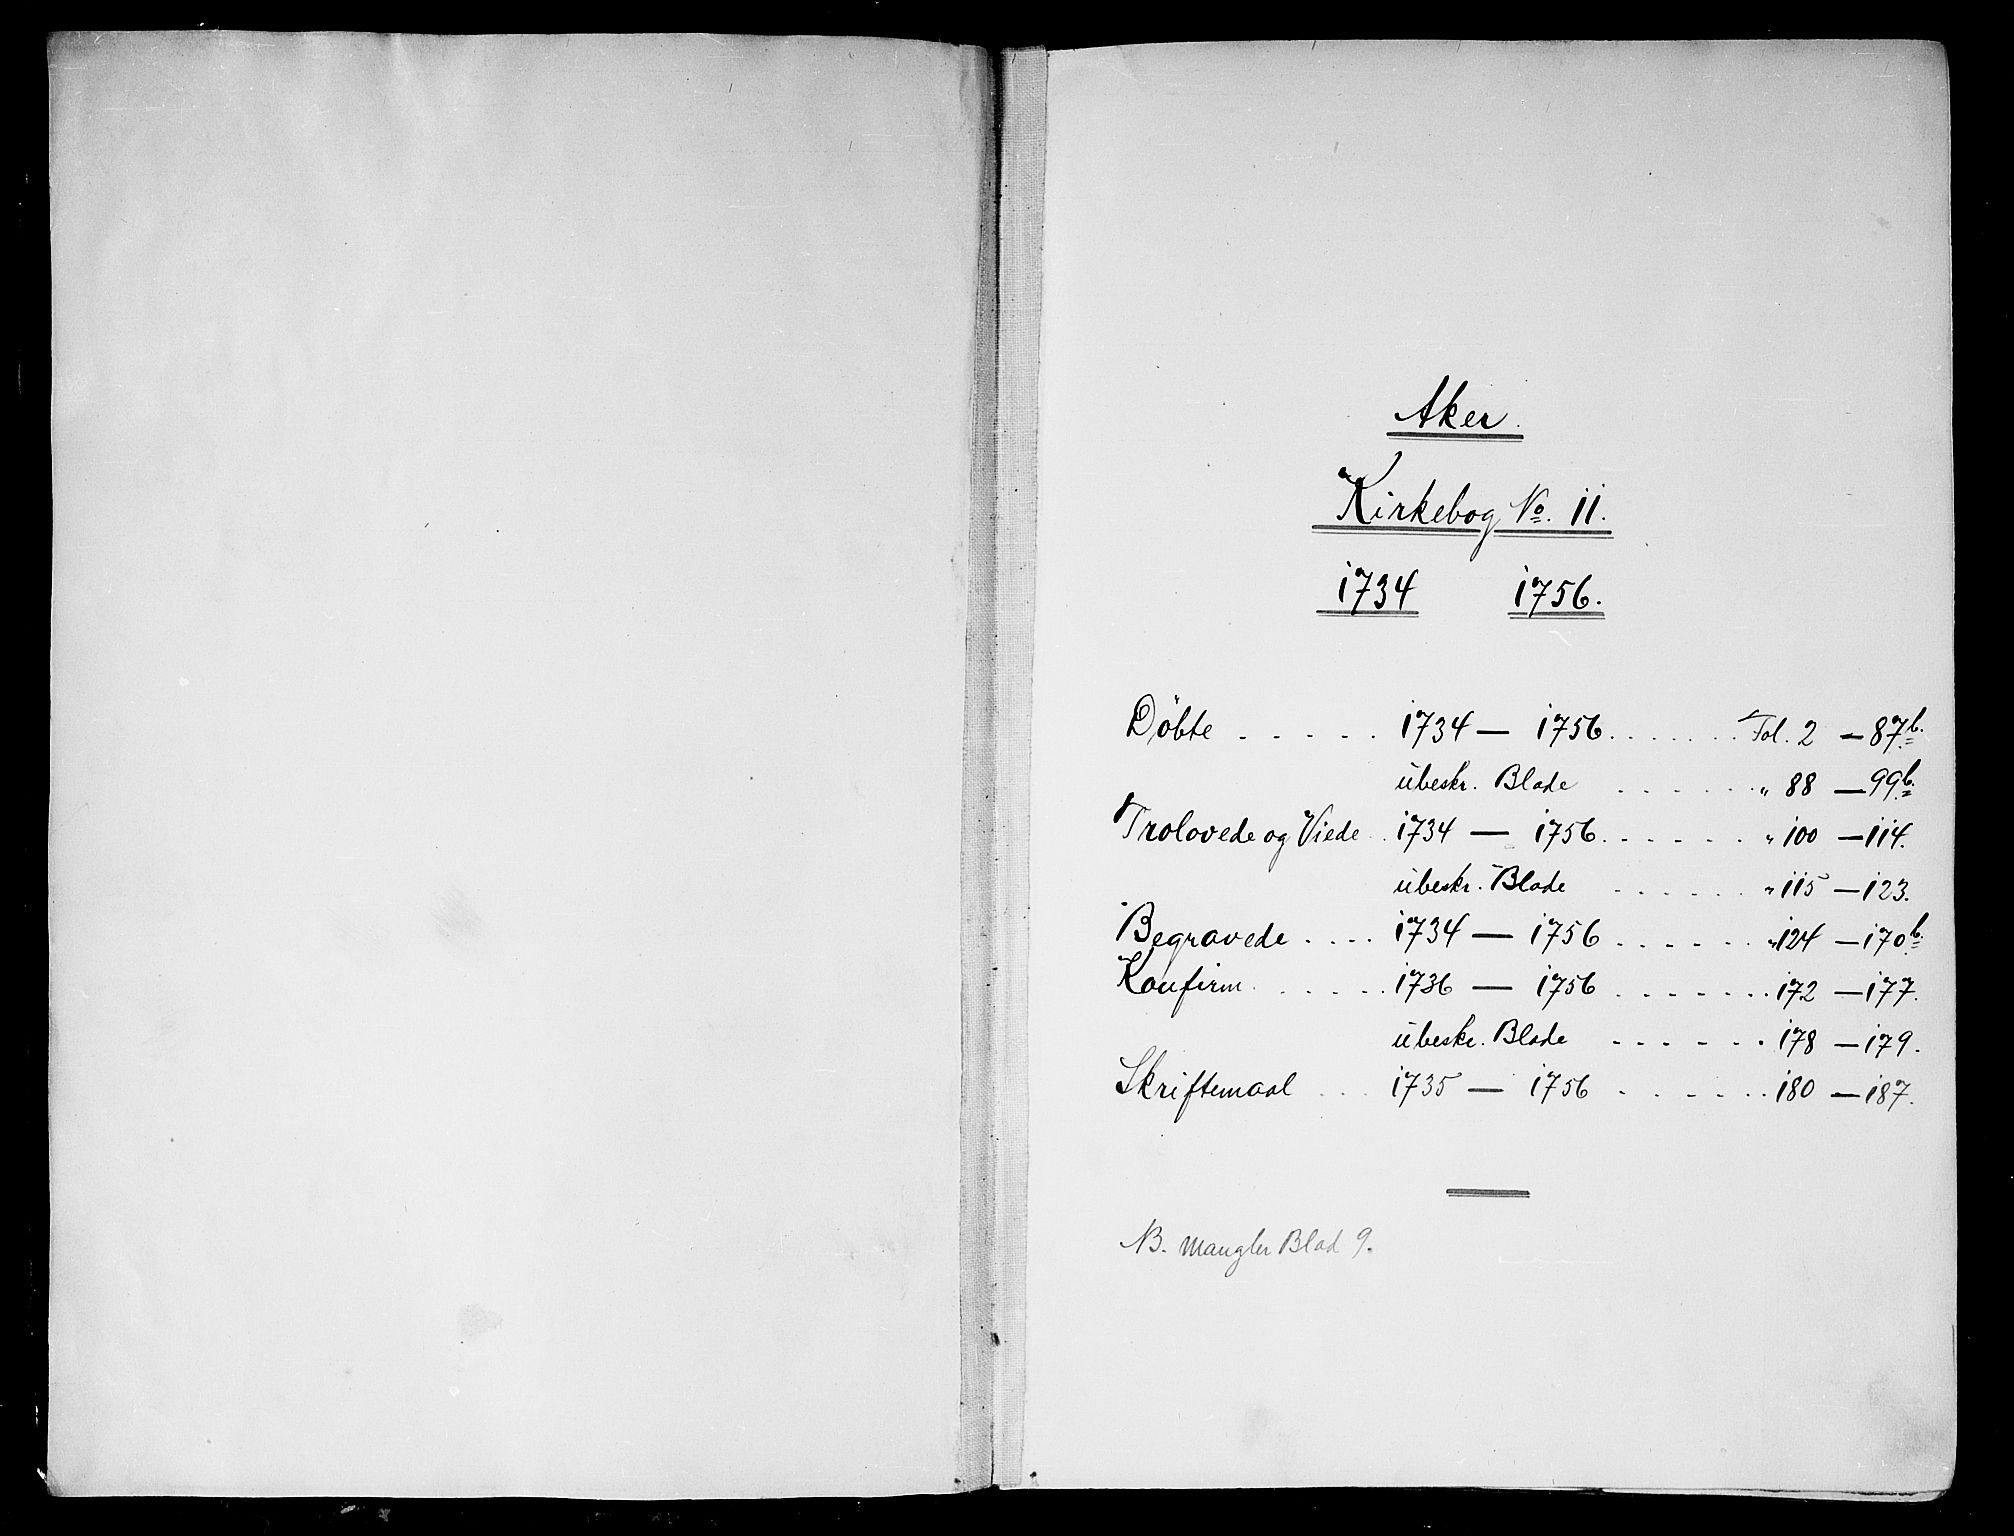 Aker.
Kirkebog No. 11.
1734 1756.
Döbte . . . . . 1734 — 1756 . . . . . . . Fol. 2 — 87b.
ubeskr. Blade . . . . . . " 88 — 99b.
Trolovede og Viede . . 1734 — 1756 . . . . . . " 100 — 114.
ubeskr. Blade . . . . . . " 115 — 123.
Begravede . . . . 1734 — 1756 . . . . . . " 124 — 170b.
Konfirm. . . . . . 1736 — 1756 . . . . . . . 172 — 177.
ubeskr. Blade . . . . . . 178 — 179.
Skriftemaal . . . 1735 — 1756 . . . . . . 180 — 187.
NB. mangler Blad 9.